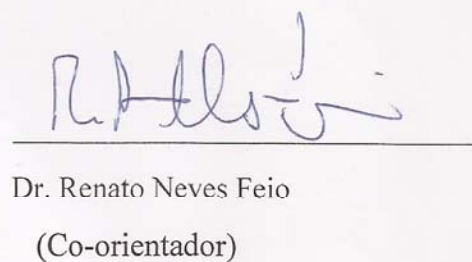 Dr. Renato Neves Feio
(Co-orientador)